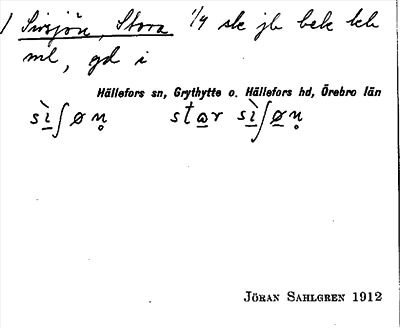 Sirsjön, Stora 1/4 sk jb bek kb
ml, gd i
Hällefors sn, Grythytte o. Hällefors hd, Örebro län
sìʃøn̥ star sìʃøn̥
JÖRAN SAHLGREN 1912